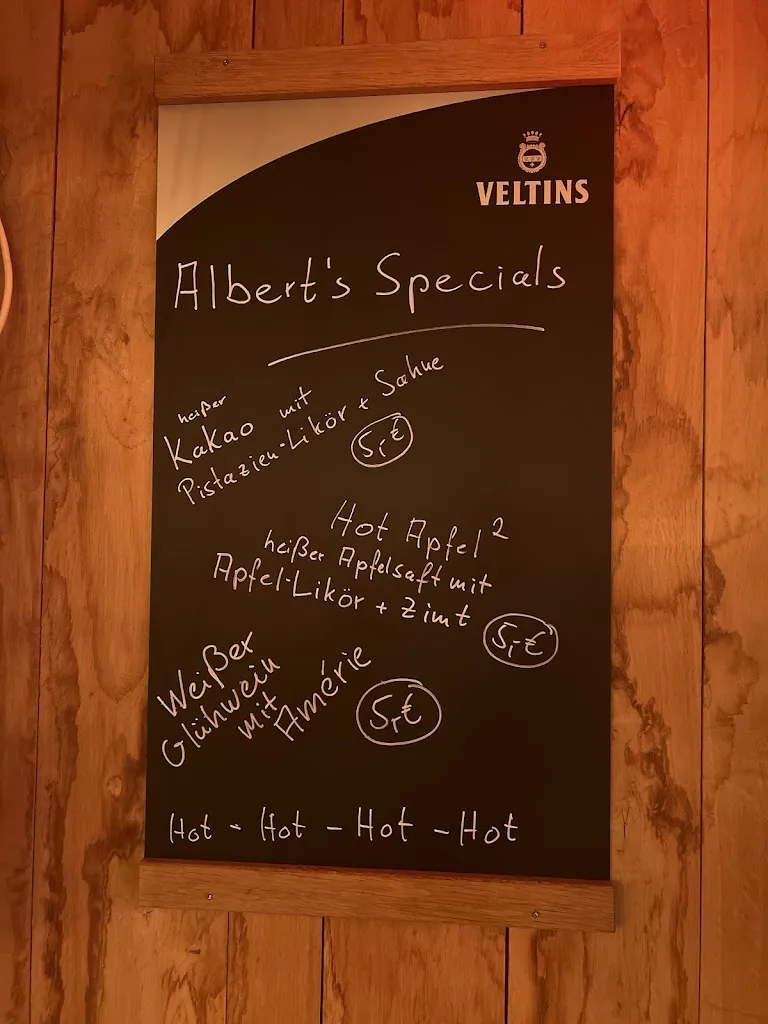 VELTINS
Albert's Specials
heißer
Kakao mit
Pistazien-Likör + Sahne
5,-€
Hot Apfel²
heißer Apfelsaft mit
Apfel-Likör + Zimt
5,-€
Weißer
Glühwein
mit
Amérie
5,-€
Hot - Hot - Hot - Hot